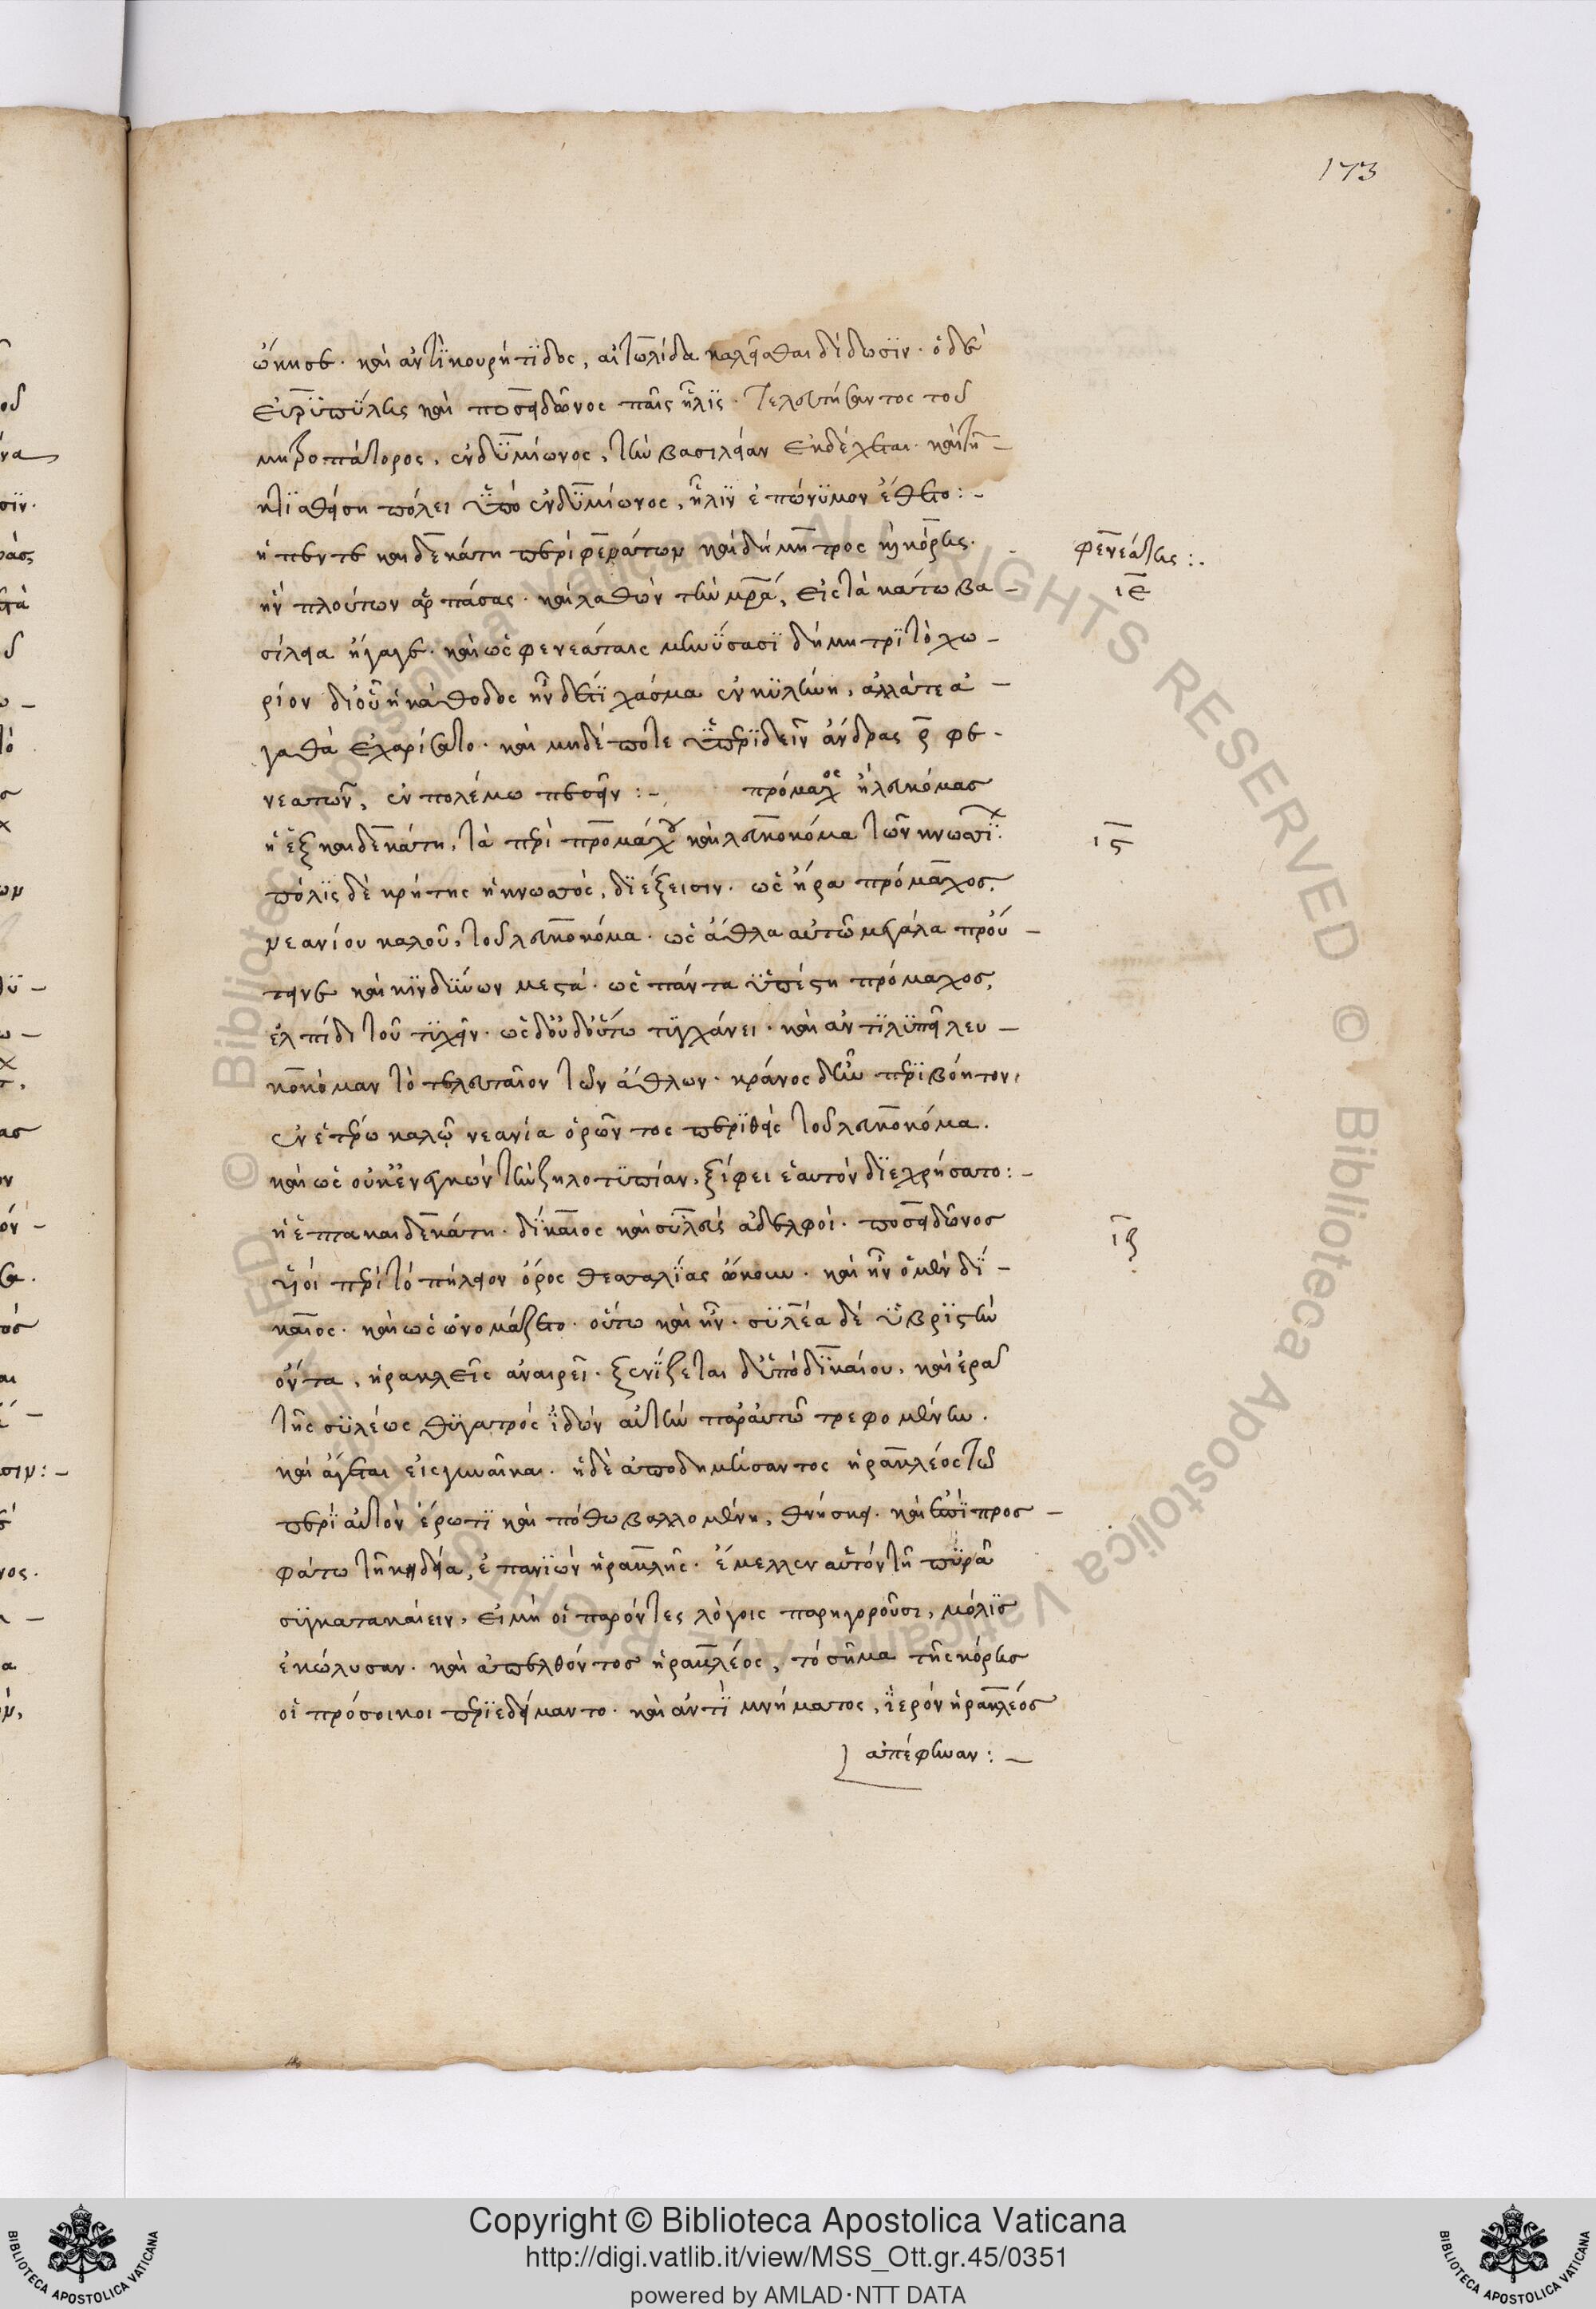 173
ᾤκησε. καὶ ἀντὶ κουρήτϊδος, αἰτωλίδα καλεῖσθαι δίδωσϊν. ὁ δὲ
εὐρϋπύλης καὶ ποσειδῶνος παῖς ἦλϊς. τελευτήσαντος τοῦ
μητροπάτορος, ἐνδϋμίωνος, τὴν βασιλείαν ἐκδέχεται. καὶ τῆ –
κτϊσθείση πόλει ὑπὸ ἐνδϋμίωνος, ἦλϊν ἐπώνϋμον ἔθετο: –
ἡ πέντε καὶ δεκάτη περὶ φερεάτων καὶ δήμητρος καὶ κόρης.
φενεάτης :.
ιε
ἣν πλούτων ἁρπάσας. καὶ λαθὼν τὴν μρα, εἰς τὰ κάτω βα –
σίλεια ἤγαγε. καὶ ὡς φενεάταις μηνύσασϊ δήμητρϊ τὸ χω –
ρίον διοῦ ἡ κάθοδος ἦν δέ τϊ χάσμα ἐν κϋλήνη, ἄλλά τε ἀ –
γαθὰ ἐχαρίσατο. καὶ μηδέποτε ὑπερϊδεῖν ἄνδρας ρ φε –
νεατῶν, ἐν πολέμω πεσεῖν : – πρόμαχος ἢ λευκόμας
ἡ ἑξκαιδεκάτη, τὰ περὶ προμάχου καὶ λευκοκόμα τῶν κνωσϊ.
ις
πόλϊς δὲ κρήτης ἡ κνωσός, δϊέξεισιν. ὡς ἤρα πρόμαχος,
νεανίου καλοῦ, τοῦ λευκοκόμα. ὡς ἆθλα αὐτῶ μεγάλα πρού –
τεινε καὶ κϊνδύνων μεστά. ὡς πάντα ὑπέστη πρόμαχος,
ἐλπίδι τοῦ τϋχεῖν. ὡς δ᾽ οὐδ᾽ οὕτω τϋγχάνει. καὶ ἀντϊλϋπεῖ λευ –
κοκόμαν τὸ τελευταῖον τῶν ἄθλων. κράνος δ᾽ ἦν περϊβόητον,
ἐν ἑτέρω καλῶ νεανία ὁρῶντος περϊθεὶς τοῦ λευκοκόμα.
καὶ ὡς οὐκ ἐνεγκὼν τὴν ζηλοτϋπίαν, ξίφει ἑαυτὸν δϊεχρήσατο: –
ἡ ἑπτακαιδεκάτη. δίκαιος καὶ σϋλεὺς ἀδελφοί. ποσειδῶνος
ιζ
υἱοὶ περὶ τὸ πήλειον ὄρος θεσσαλίας ᾤκουν. καὶ ἦν ὁ μὲν δϊ –
καιος. καὶ ὡς ὠνομάζετο. οὕτω καὶ ἦν. σϋλέα δὲ ὑβρϊστὴν
ὄντα, ἡρακλεῖς ἀναιρεῖ. ξενίζεται δ᾽ ὑπὸ δϊκαίου, καὶ ἐρᾶ
τῆς σϋλέως θϋγατρός ἰδὼν αὐτὴν παρ᾽ αὐτῶ τρεφομένην.
καὶ ἄγεται εἰς γυναῖκα. ἡ δὲ ἀποδημήσαντος ἡρακλέος τῶ
περϊ αὐτὸν ἔρωτϊ καὶ πόθω βαλλομένη, θνήσκει. καὶ ἐπϊ προσ –
φάτω τῆ κηδεία, ἐπανϊὼν ἡρακλῆς. ἔμελλεν αὑτὸν τῆ πϋρᾶ
σϋγκατακαίειν, εἰ μὴ οἱ παρόντες λόγοις παρηγοροῦσι, μόλϊς
ἐκώλυσαν. καὶ ἀπελθόντος ἡρακλέος, τὸ σῆμα τῆς κόρης
οἱ πρόσοικοι περϊεδείμαντο. καὶ ἀντὶ μνήματος, ἱερὸν ἡρακλέος
ἀπέφηναν: –
Copyright © Biblioteca Apostolica Vaticana
http://digi.vatlib.it/view/MSS_Ott.gr.45/0351
powered by AMLAD·NTT DATA